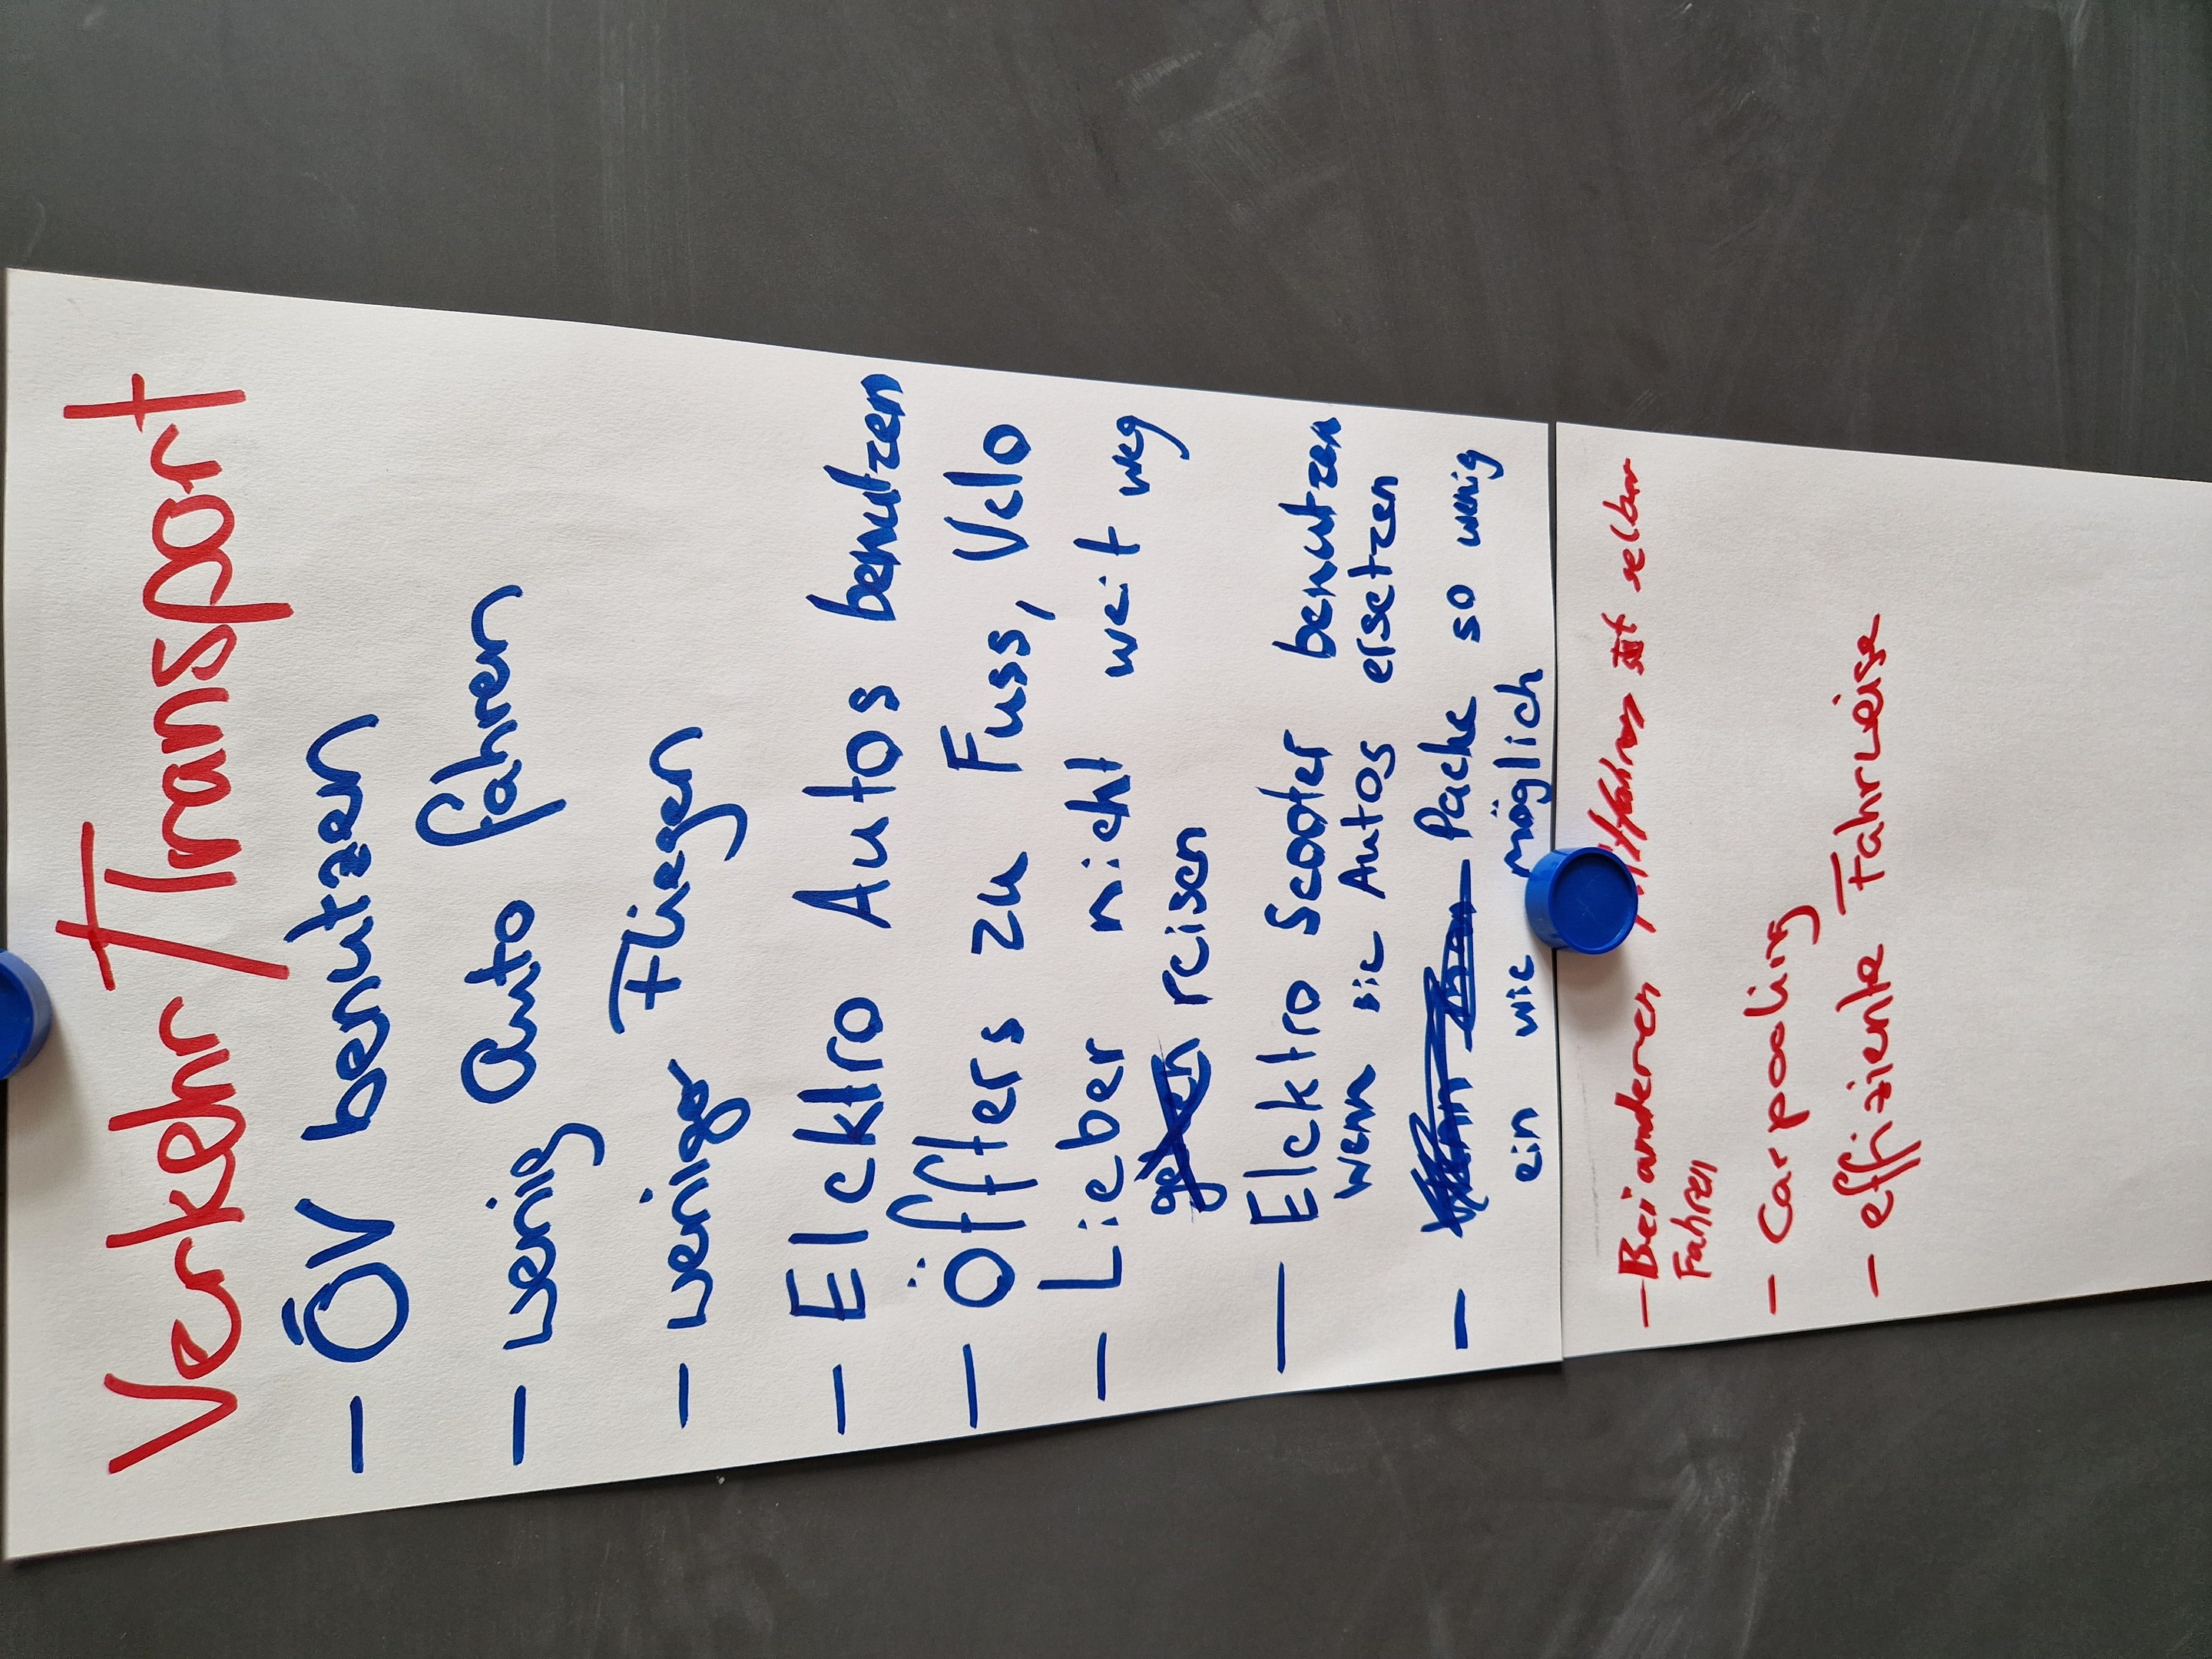 Verkehr / Transport
- ÖV benutzen
- wenig Auto fahren
- wenige Fliegen
- Elektro Autos benutzen
- Öffters zu Fuss, Velo
- Lieber nicht weit weg
reisen
- Elektro Scooter benutzen
wenn sie Autos ersetzen
- Packe so wenig
ein wie möglich
- Bei anderen Mitfahren statt selber
Fahren
- Carpooling
- effiziente Fahrweise